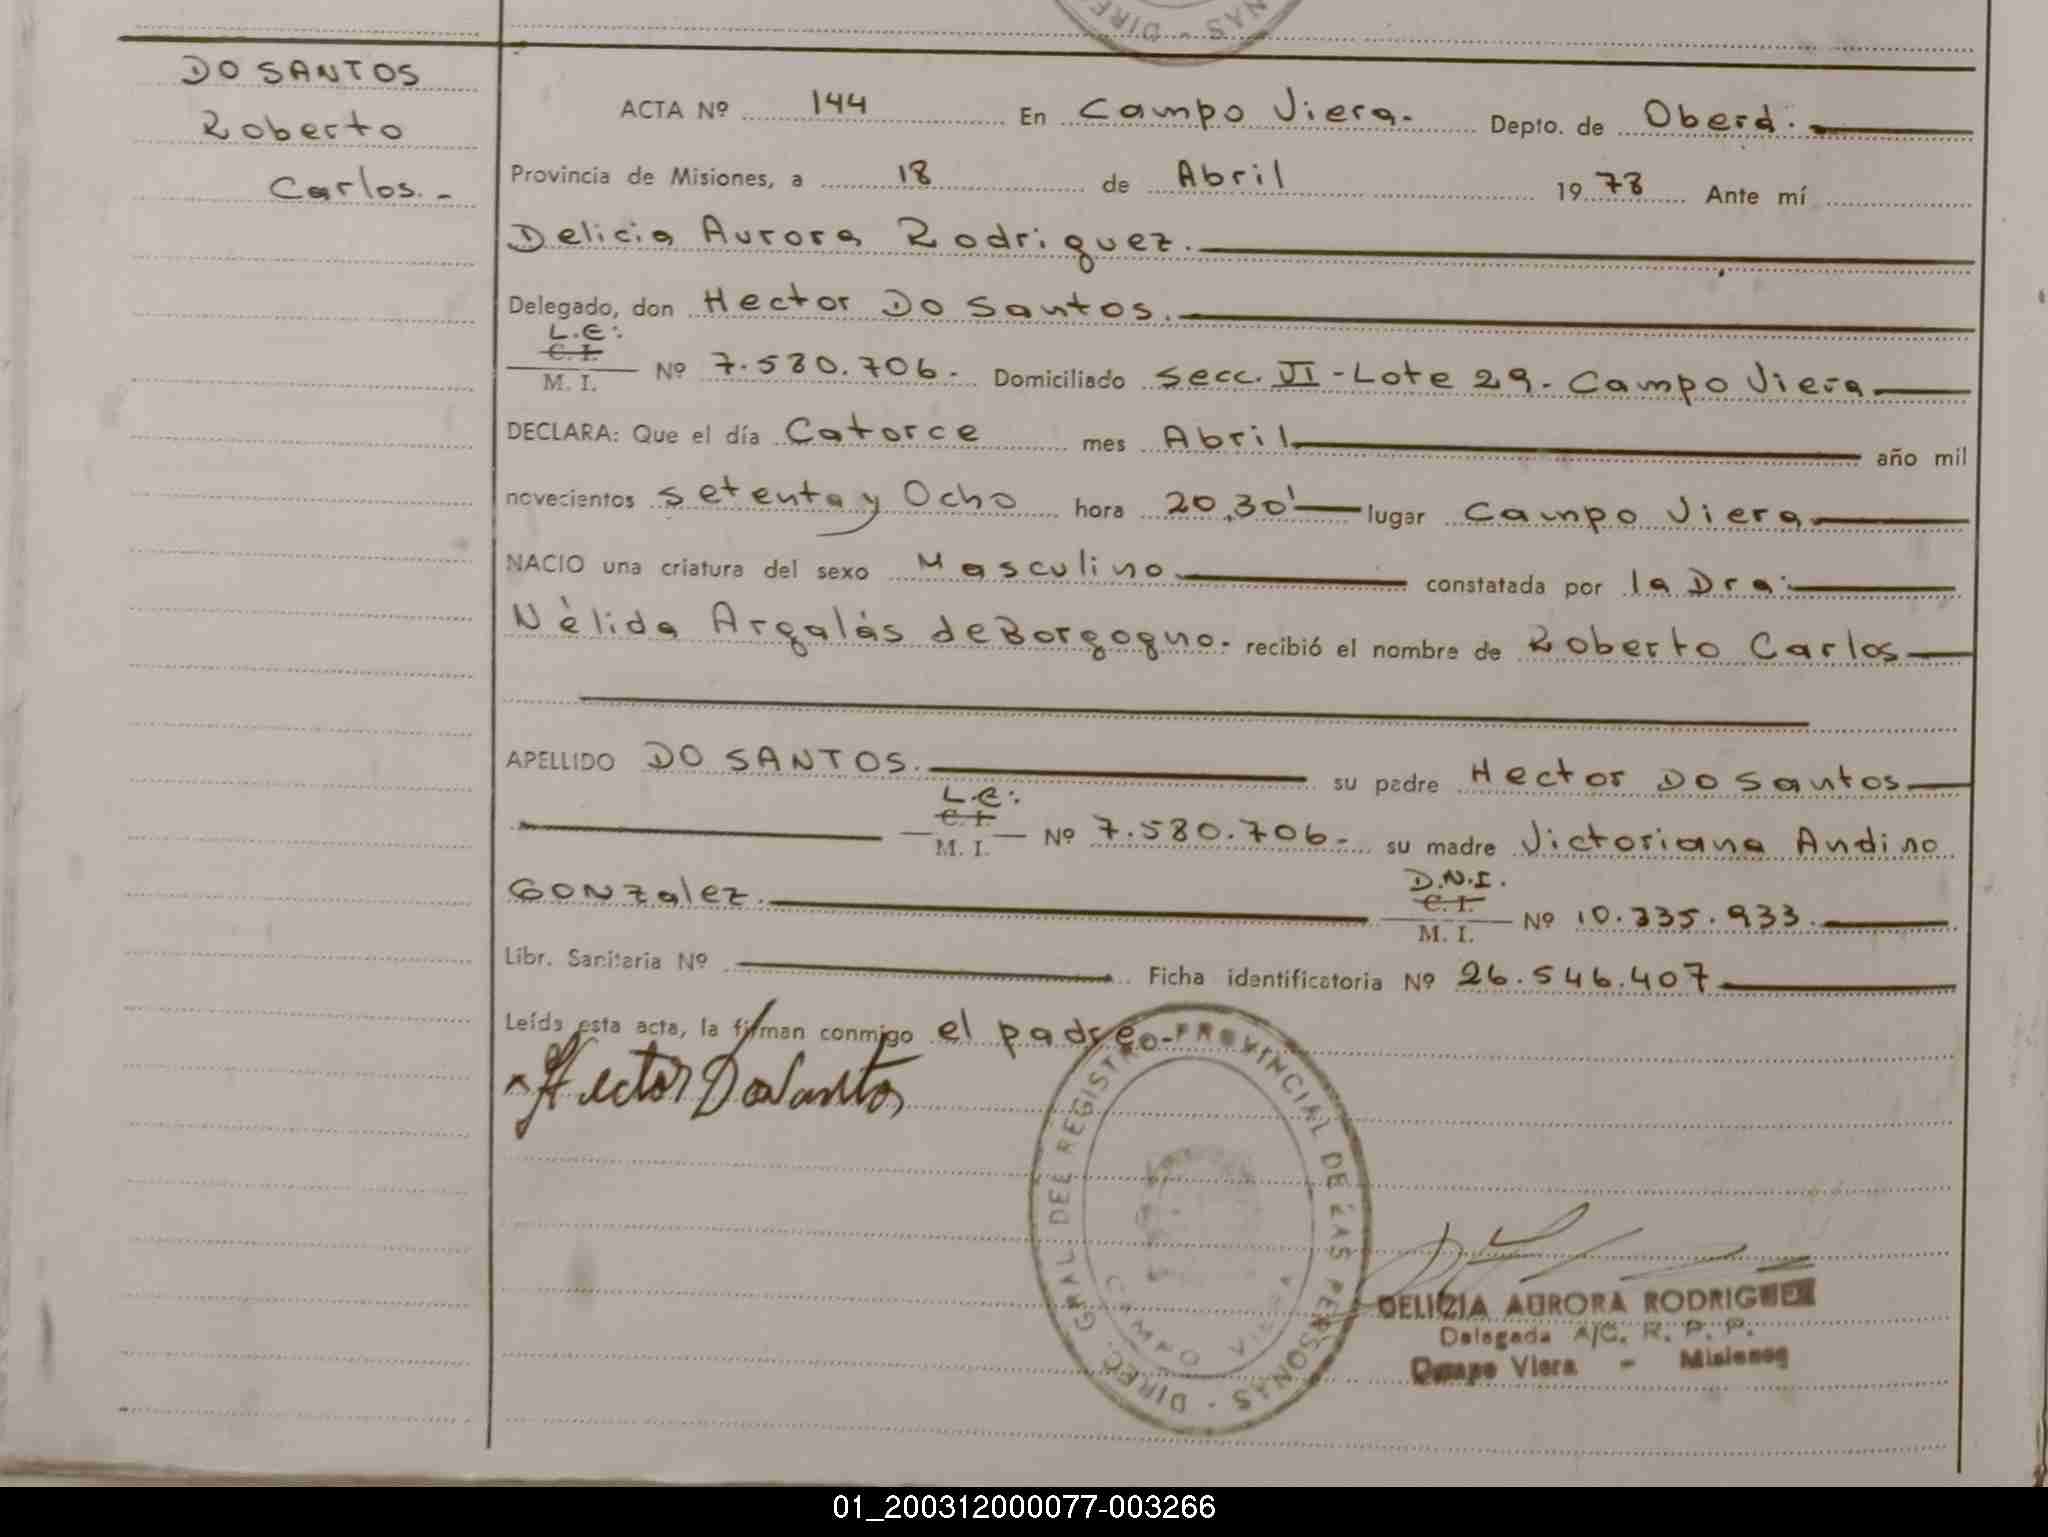 DIREC. NAS
DO SANTOS
Roberto
Carlos.-
ACTA Nº 144 En Campo Viera. Depto. de Oberá.
Provincia de Misiones, a 18 de Abril 1978 Ante mí
Delicia Aurora Rodriguez.
Delegado, don Hector Do Santos.
L.E:
C. I.
M. I.
Nº 7.580.706. Domiciliado Secc. VI - Lote 29. Campo Viera
DECLARA: Que el día Catorce mes Abril año mil
novecientos setenta y Ocho hora 20,30' lugar Campo Viera
NACIO una criatura del sexo Masculino constatada por la Dra.
Nélida Argalás de Borgogno. recibió el nombre de Roberto Carlos
APELLIDO DO SANTOS. su padre Hector Do Santos
L.E:
C. I.
M. I.
Nº 7.580.706. su madre Victoriana Andino
Gonzalez.
D.N.I.
C. I.
M. I.
Nº 10.335.933.
Libr. Sanitaria Nº Ficha identificatoria Nº 26.546.407
Leída esta acta, la firman conmigo el padre.
Hector Do Santos
DIREC. GRAL DEL REGISTRO PROVINCIAL DE LAS PERSONAS
CAMPO VIERA
DELIZIA AURORA RODRIGUEZ
Delegada A/C. R. P. P.
Campo Viera - Misiones
01_200312000077-003266